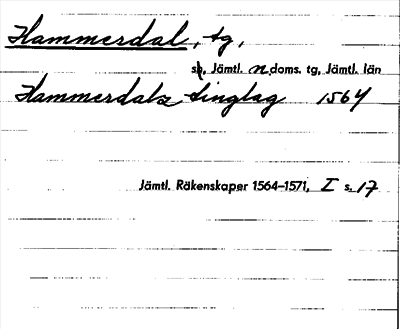 Hammerdal, tg,
sn, Jämtl. n. doms. tg, Jämtl. län
Hammerdals tinglag 1564
Jämtl. Räkenskaper 1564–1571, I s. 17